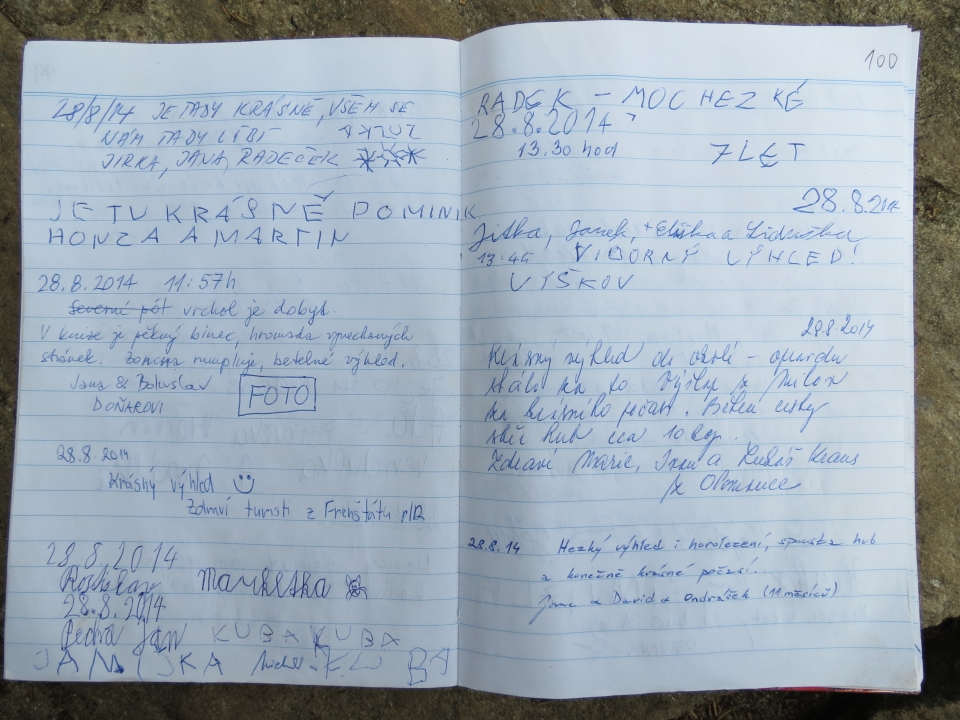 28/8/14 JE TADY KRÁSNĚ, VŠEM SE
NÁM TADY LÍBÍ
JIRKA, JANA, RADEČEK
JE TU KRÁSNĚ DOMINIK
HONZA A MARTIN
28.8.2014 11:57h
Severní pót vrchol je dobyt.
V knize je pěkný binec, hromada
stránek. výhled.
Jana & Bohuslav
DOŇAROVI
FOTO
28.8.2014
Krásný výhled
Zdraví turisti z Frenštátu p/R
28.8.2014
Markétka
28.8.2014
Jan KUBA KUBA
100
RADEK - MOC HEZKÉ
28.8.2014
13.30 hod
7LET
28.8.2014
Jitka, Janek, + Eliška a Liduška
13:45 VIBORNÝ VÝHLED!
VYŠKOV
28.8.2014
Krásný výhled do okolí - opravdu
stálo za to
za krásného počasí. Během cesty
hub cca 10 kg.
Zdraví Marie, Ivan a Lukáš Kraus
z Olomouce
28.8.14 Hezký výhled i horolezení, spousta hub
a konečně krásné počasí.
Jana a David a Ondrášek (11 měsíců)